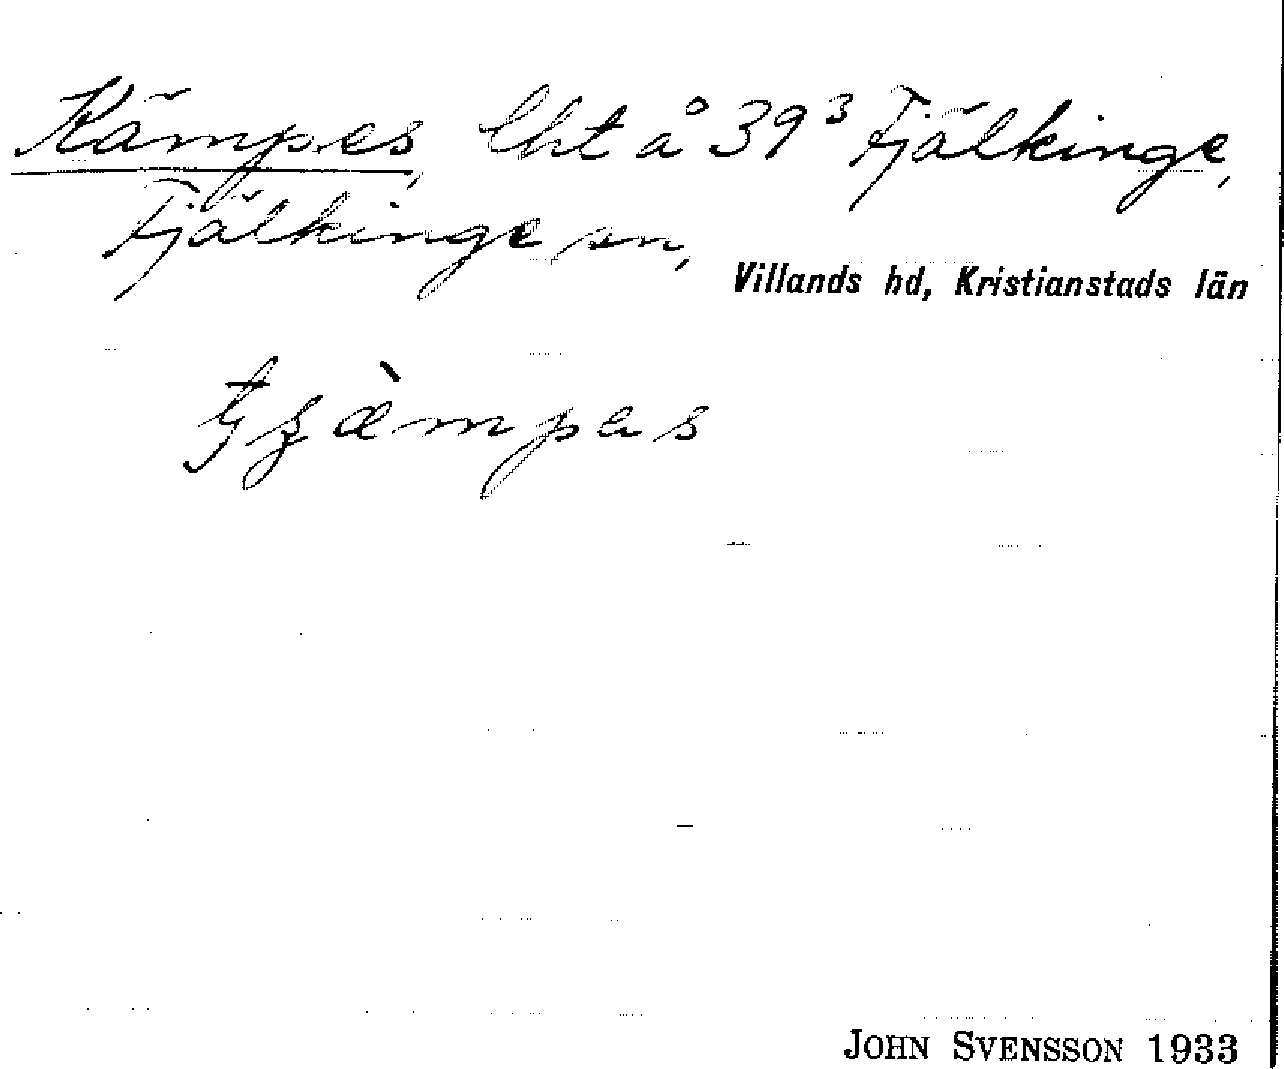 Kämpes, lht å 39³ Fjälkinge,
Fjälkinge sn,
Villands hd, Kristianstads län
JOHN SVENSSON 1933